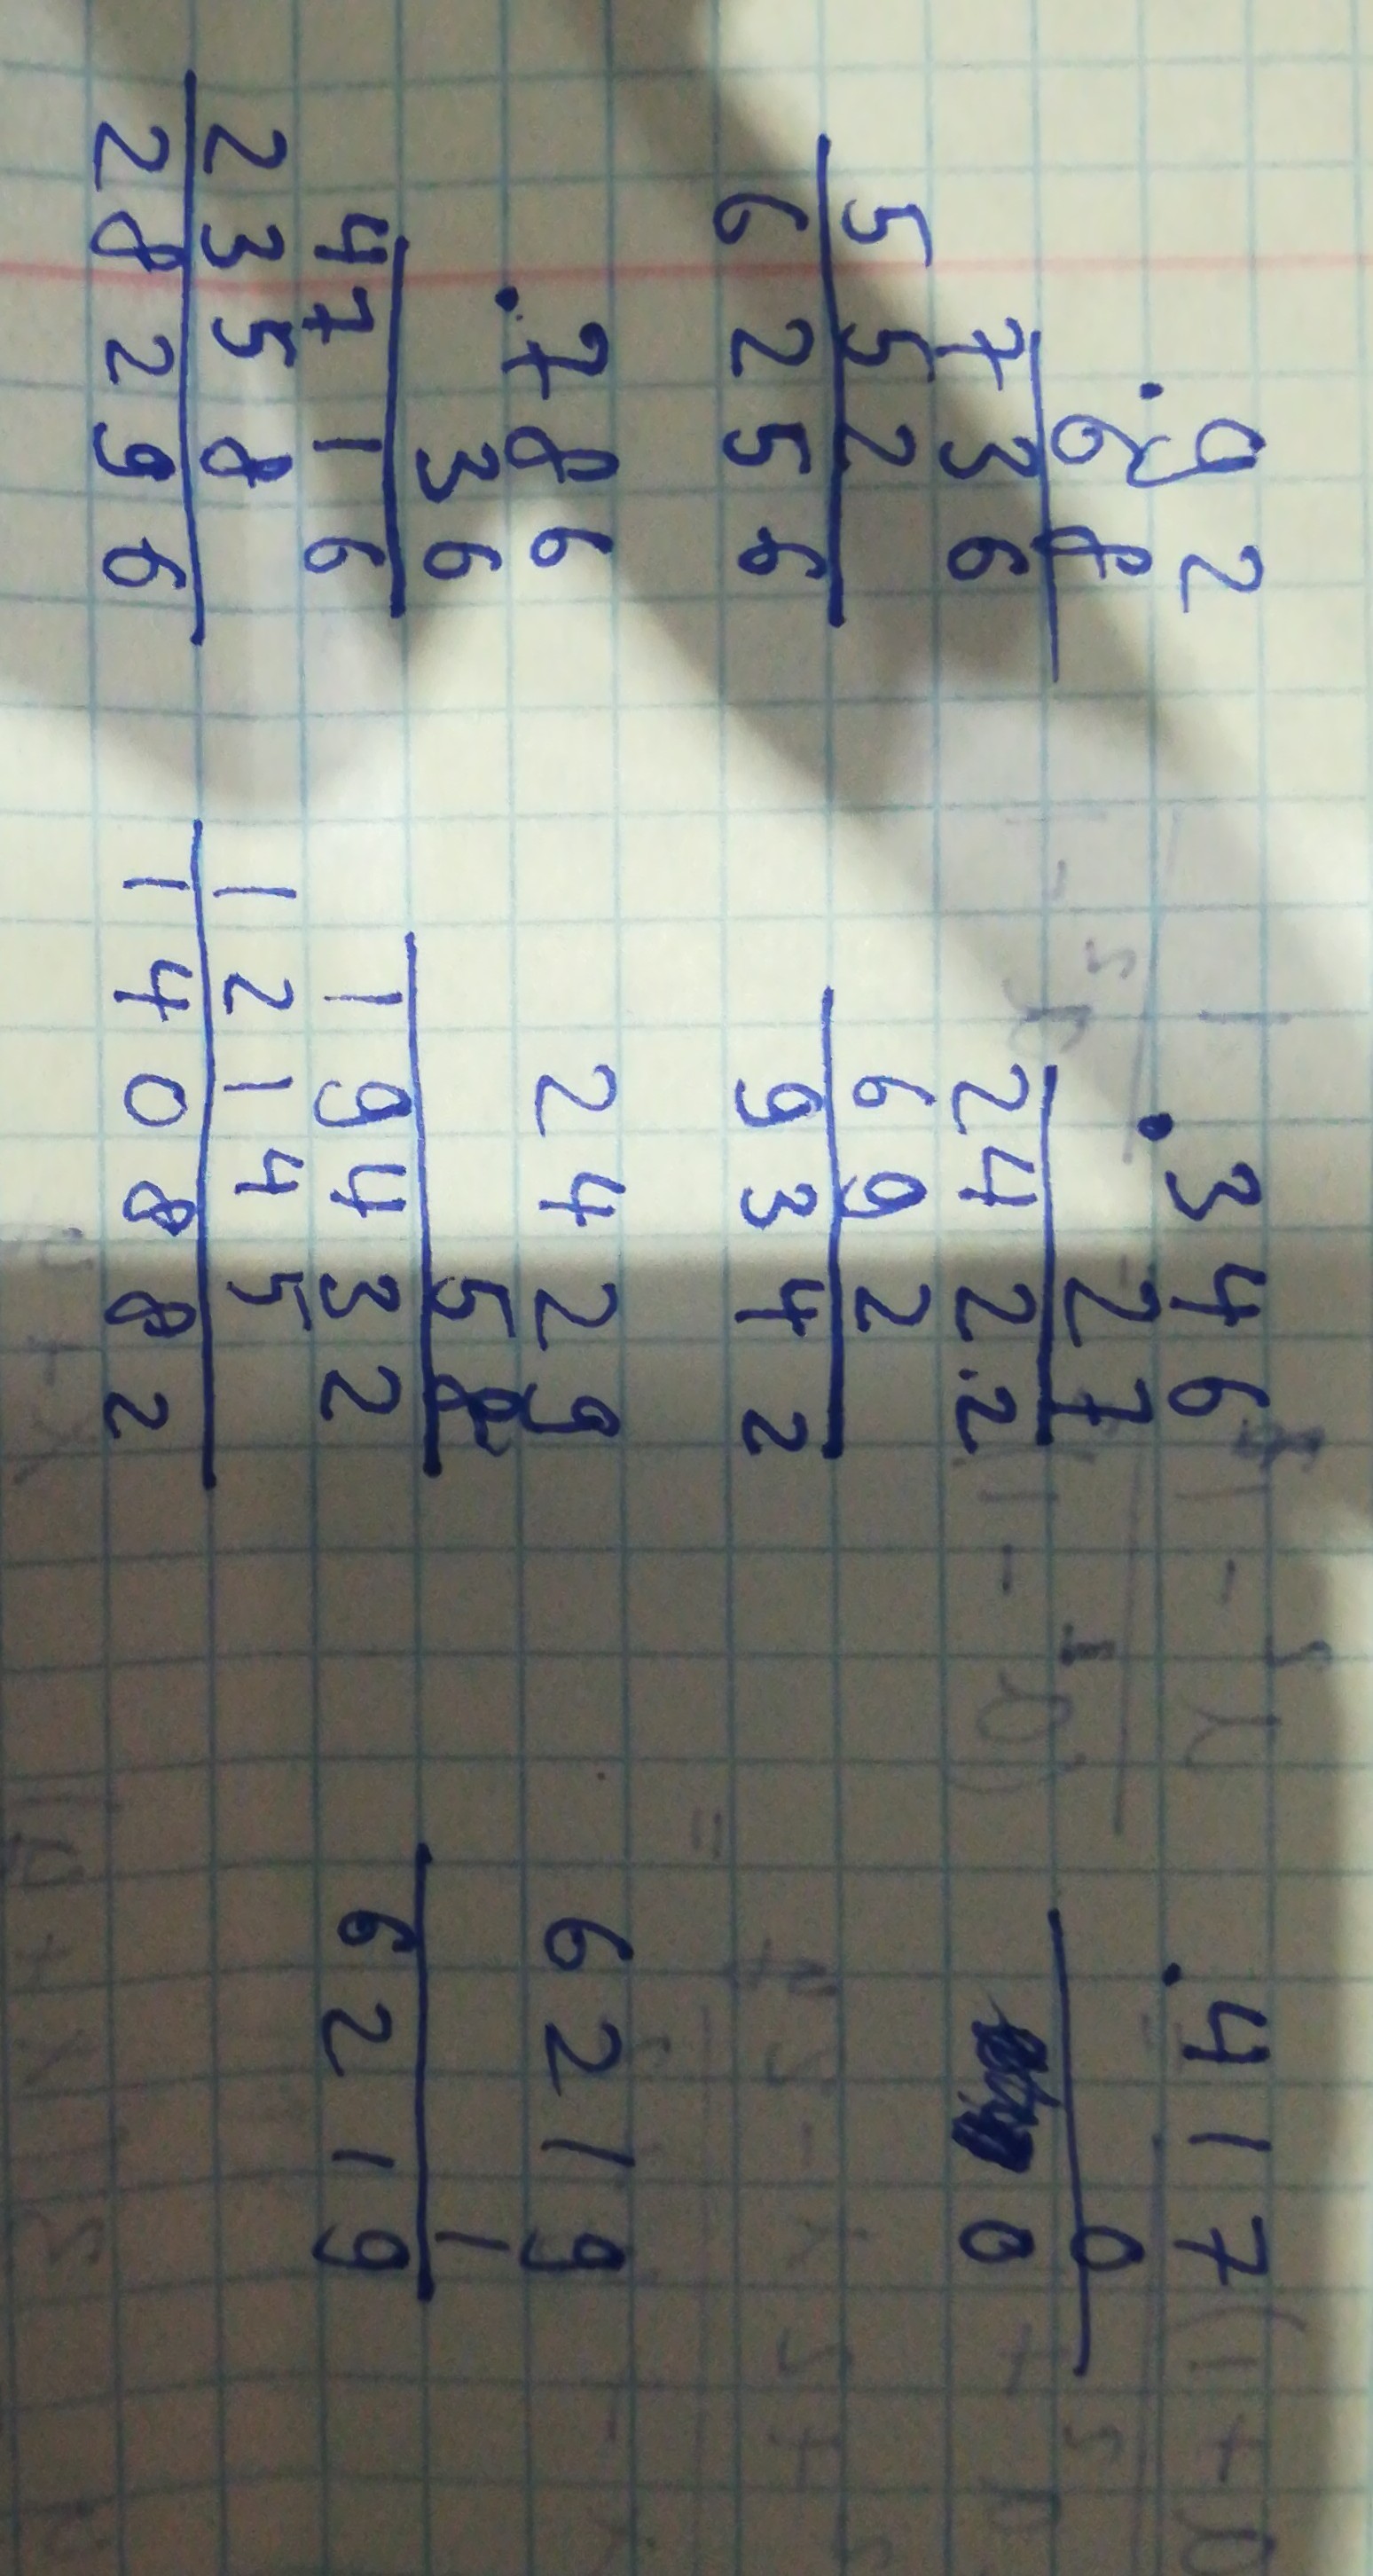 92
· 68
736
552
6256
346
· 27
242.2
692
9342
417
· 0
0
786
· 36
4716
2358
28296
2429
58
19432
12145
140882
6219
1
6219